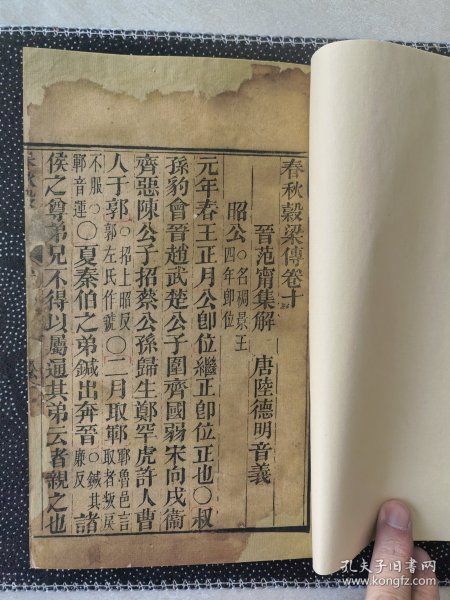 春秋穀梁傳卷十
晉范甯集解　唐陸德明音義
昭公 ○名稠景王四年卽位
元年春王正月公卽位繼正卽位正也○叔
孫豹會晉趙武楚公子圍齊國弱宋向戌衞
齊惡陳公子招蔡公孫歸生鄭罕虎許人曹
人于郭 ○招上昭反郭左氏作虢 ○二月取鄆 鄆魯邑言取者叛戾
不服○鄆音運 ○夏秦伯之弟鍼出奔晉 ○鍼其廉反 諸
侯之尊弟兄不得以屬通其弟云者親之也
孔夫子旧书网
www.kongfz.com